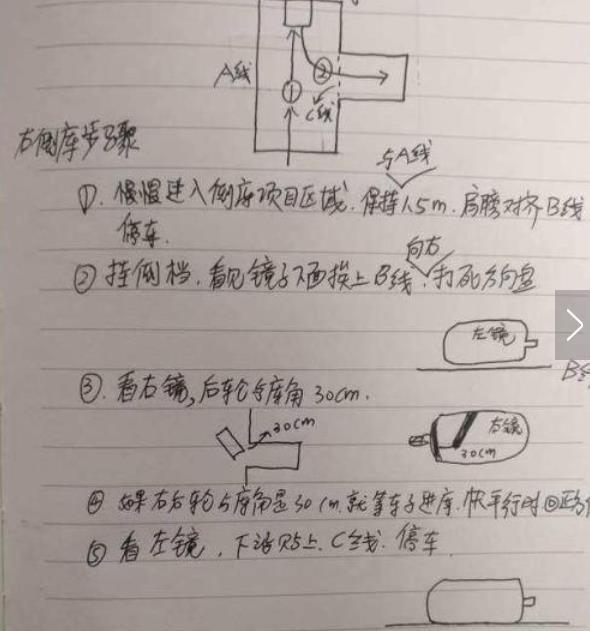 A线
①
②
C线
右倒库步骤
与A线
①. 慢慢进入倒库项目区域. 保持1.5m. 肩膀对齐B线
停车.
向右
②挂倒档. 看见镜子下面挨上B线. 打死方向盘
左镜
B
③. 看右镜, 后轮与库角30cm.
30cm
右镜
30cm
④ 如果右后轮与库角是30cm. 就等车子进库. 快平行时回正方
⑤ 看左镜, 下沿 上C线. 停车.